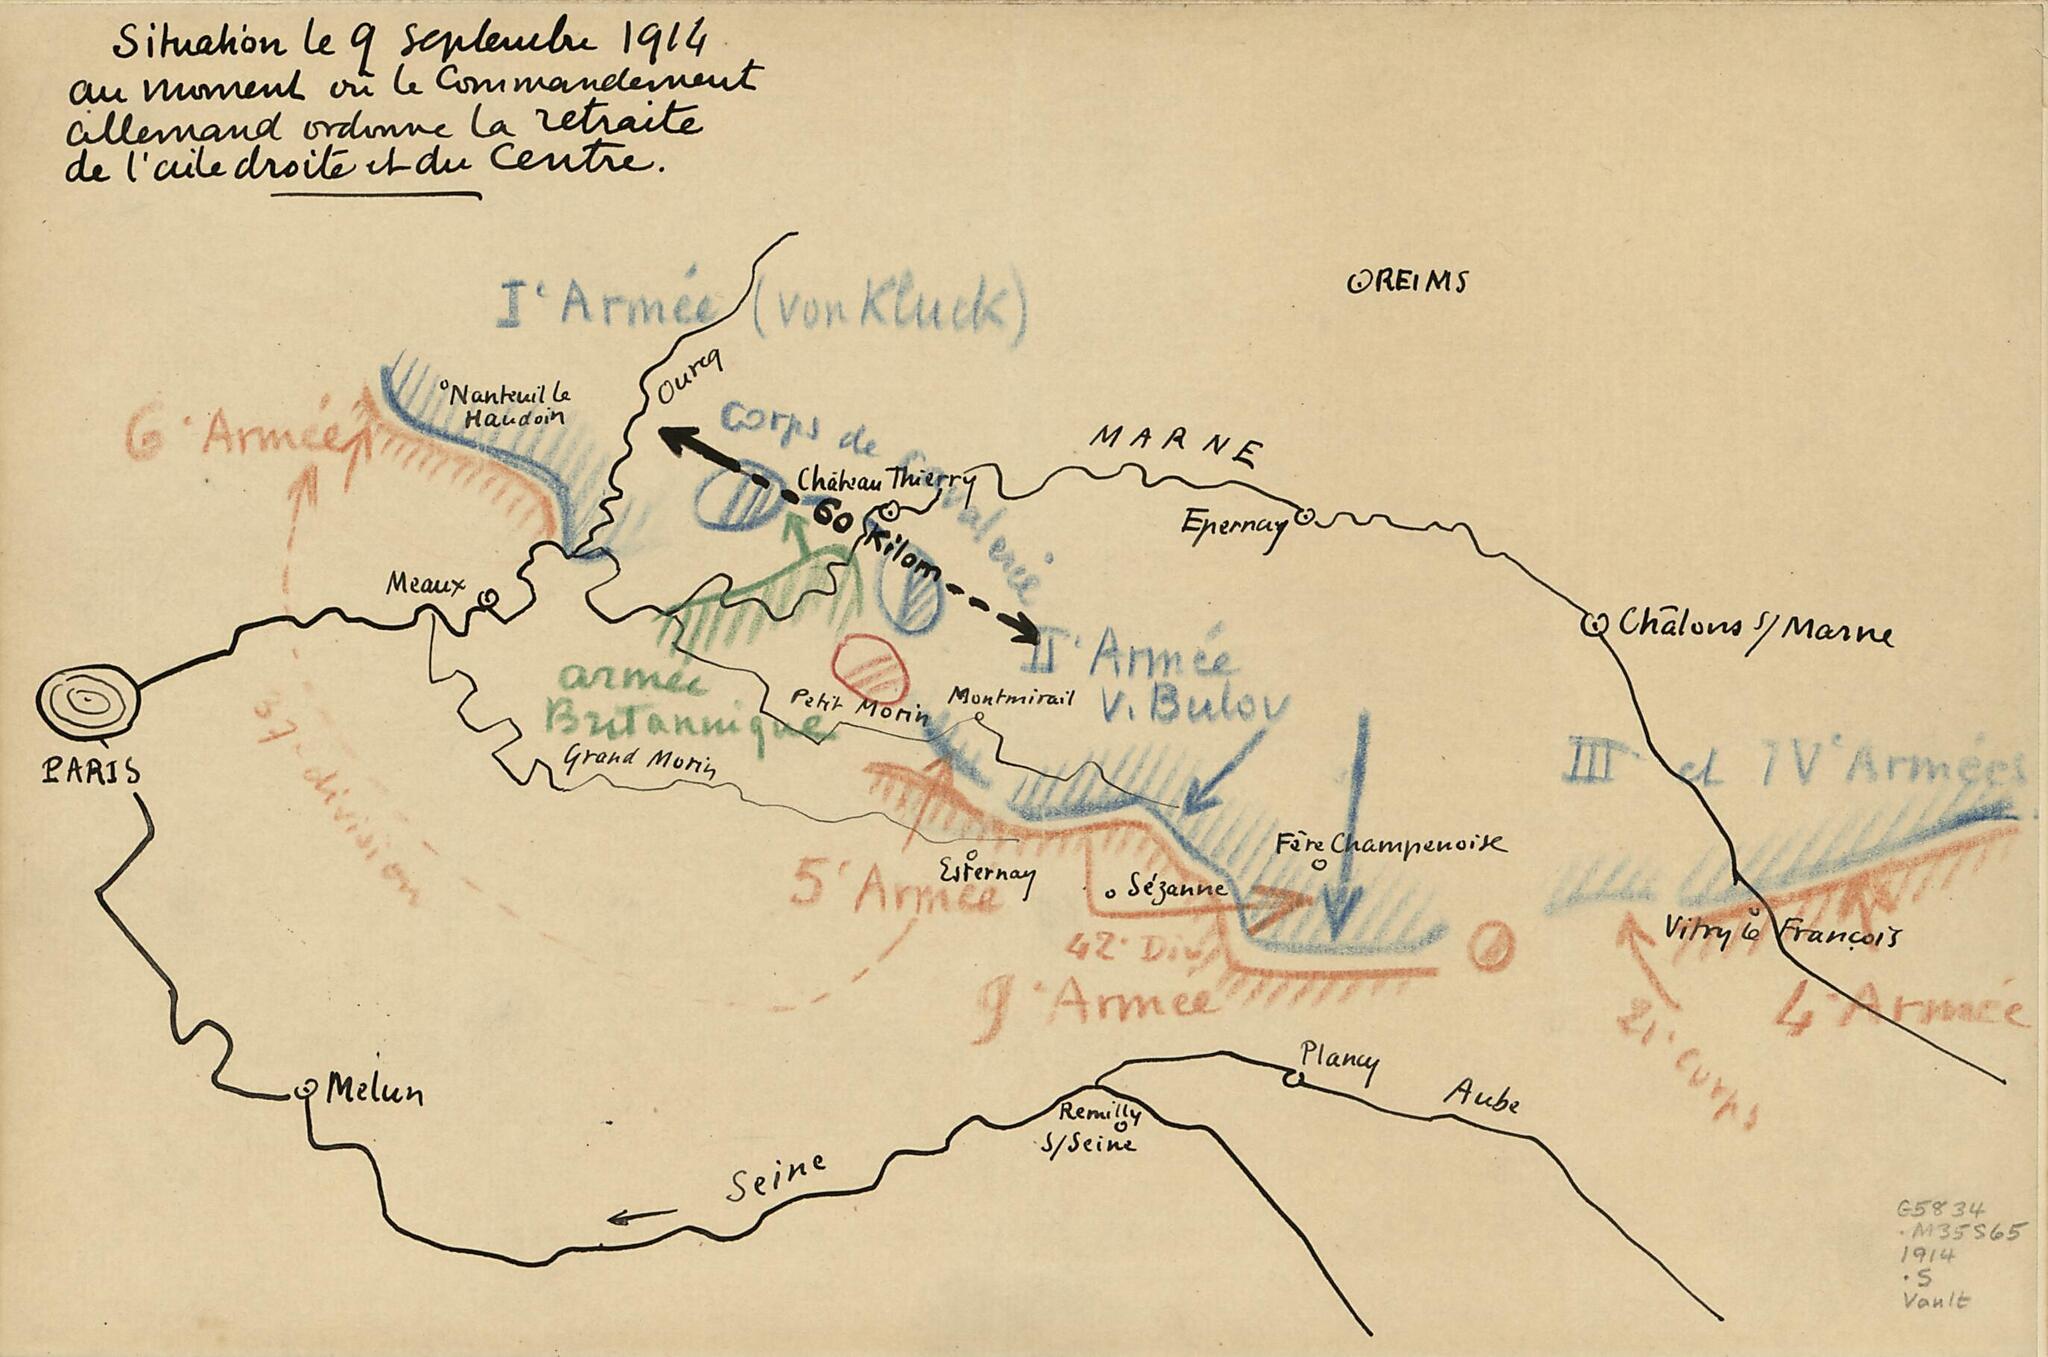 Situation le 9 Septembre 1914
au moment où le Commandement
allemand ordonne la retraite
de l'aile droite et du Centre.
Iᵉ Armée (von Kluck)
OREIMS
Ourcq
Nanteuil le
Haudoin
6ᵉ Armée
Corps de Cavalerie
MARNE
Château Thierry
60 Kilom
Epernay
Meaux
Châlons s/Marne
IIᵉ Armée
V. Bulov
armée
Britannique
Petit Morin
Montmirail
PARIS
Grand Morin
37ᵉ division
III et IVᵉ Armées
Fère Champenoise
Esternay
5ᵉ Armée
Sézanne
Vitry le François
42ᵉ Div
9ᵉ Armée
4ᵉ Armée
21ᵉ corps
Plancy
Melun
Aube
Remilly
s/Seine
Seine
G5834
.M35S65
1914
.S
Vault